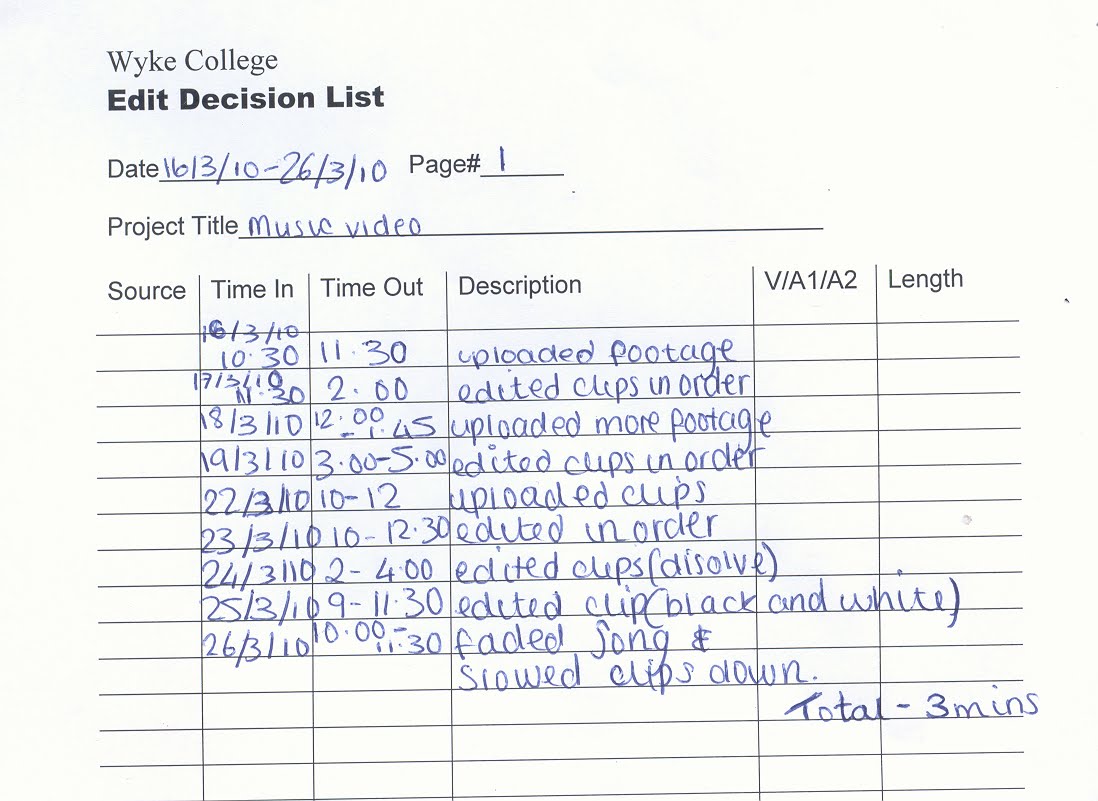 Wyke College
Edit Decision List
Date 16/3/10-26/3/10 Page# 1
Project Title Music video
Source Time In Time Out Description V/A1/A2 Length
16/3/10
10:30 11.30 uploaded footage
17/3/10
11:30 2.00 edited clips in order
18/3/10 12:00 - 1:45 uploaded more footage
19/3/10 3.00-5.00 edited clips in order
22/3/10 10-12 uploaded clips
23/3/10 10-12.30 edited in order
24/3/10 2-4.00 edited clips (disolve)
25/3/10 9-11.30 edited clip (black and white)
26/3/10 10:00-11:30 faded song &
slowed clips down.
Total - 3mins